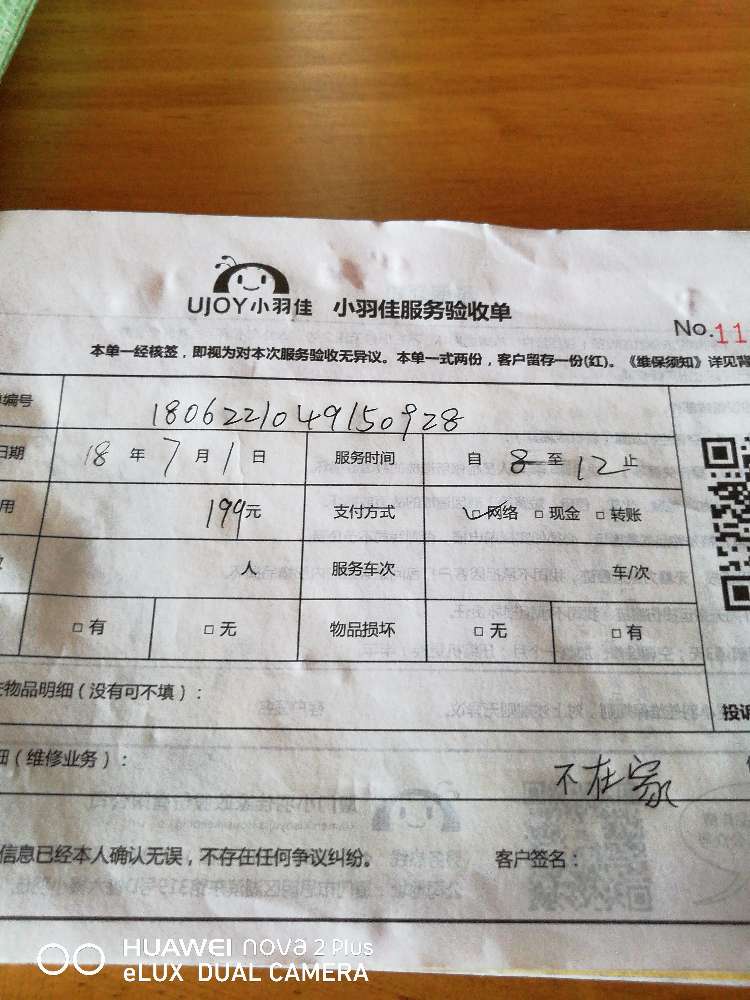 UJOY小羽佳 小羽佳服务验收单
No.11
本单一经核签，即视为对本次服务验收无异议。本单一式两份，客户留存一份(红)。《维保须知》详见背
编号 1806221049150928
日期 18 年 7 月 1 日 服务时间 自 8 至 12 止
用 199元 支付方式 网络 □ 现金 □ 转账
人 服务车次 车/次
□ 有 □ 无 物品损坏 □ 无 □ 有
物品明细（没有可不填）：
投诉
（维修业务）：
不在家
信息已经本人确认无误，不存在任何争议纠纷。 客户签名：
HUAWEI nova 2 Plus
eLUX DUAL CAMERA